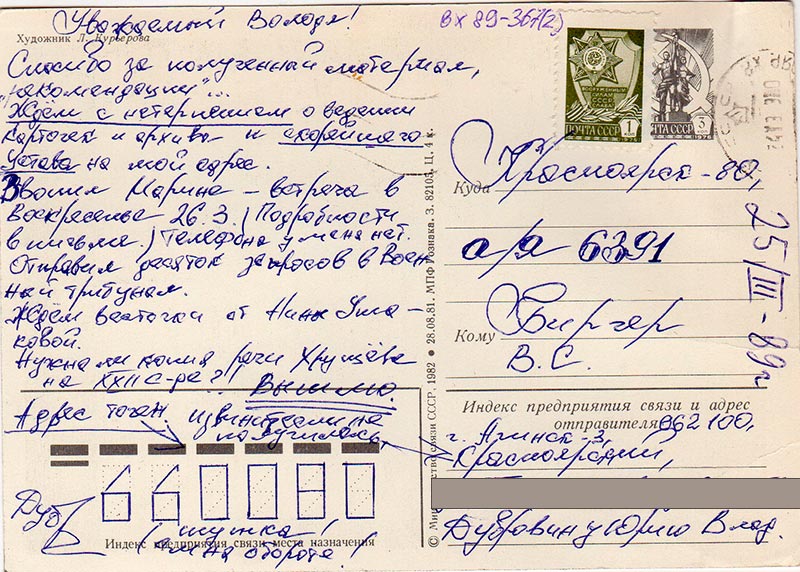 Уважаемый Володя!
Художник Л. Курьерова
Спасибо за полученный материал,
Ждём с нетерпением о ведении
карточек и архива и скорейшего
Устава на мой адрес.
Звонил Марине – встреча в
Воскресенье 26.3. / Подробности
в письме. / Телефона у меня нет.
Отправил десяток запросов в Воен
ный трибунал.
Ждём весточки от Нины Уша-
ковой.
Нужна ли копия речи Хрущёва
на XXII С-де? ... Вышлю.
Адрес точен.
извините
Дуб
шутка!
на обороте!
Индекс предприятия связи места назначения
© Министерство связи СССР, 1982 • 28.08.81. МПФ Гознака. З. 82103. Ц. 4 к.
вх 89-367(2)
ВООРУЖЕННЫМ
СИЛАМ
СССР
СЛАВА!
ПОЧТА СССР 1
ПОЧТА СССР 3
1976
Куда Красноярск-80,
а/я 6391
25/III-89г
Кому Биргер
В.С.
Индекс предприятия связи и адрес
отправителя 662100,
г. Ачинск-3,
Красноярский,
Дубровину Юрию Влад.